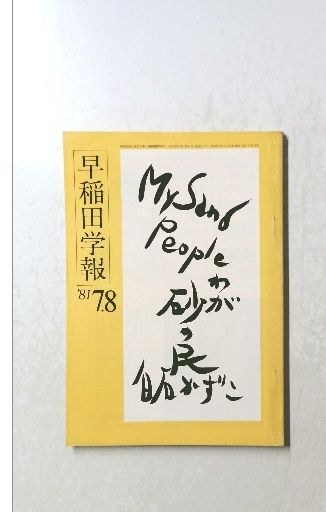 早稲田学報
'81 7.8
My Sand
People
わが
砂の民
白石かずこ